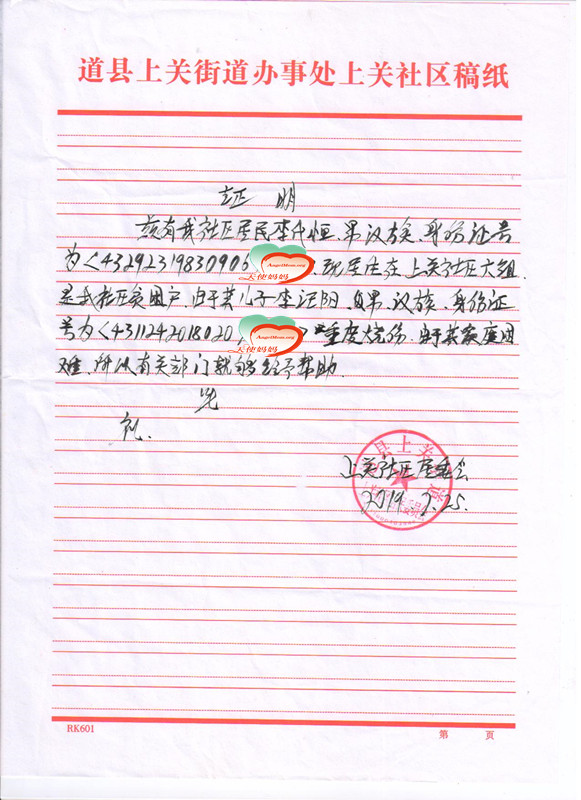 道县上关街道办事处上关社区稿纸
证 明
兹有我社区居民李代恒、男汉族、身份证号
为<43292319830906 AngelMom.org 天使妈妈 . 现居住在上关社区大组
是我社区贫困户,由于其儿子李 阳、男、汉族、身份证
号为<4311242018020 AngelMom.org 天使妈妈 重度烧伤,由于其家庭困
难,所以有关部门能够给予帮助.
此
礼.
上关社区居委会
2019.2.25.
RK601
第 页